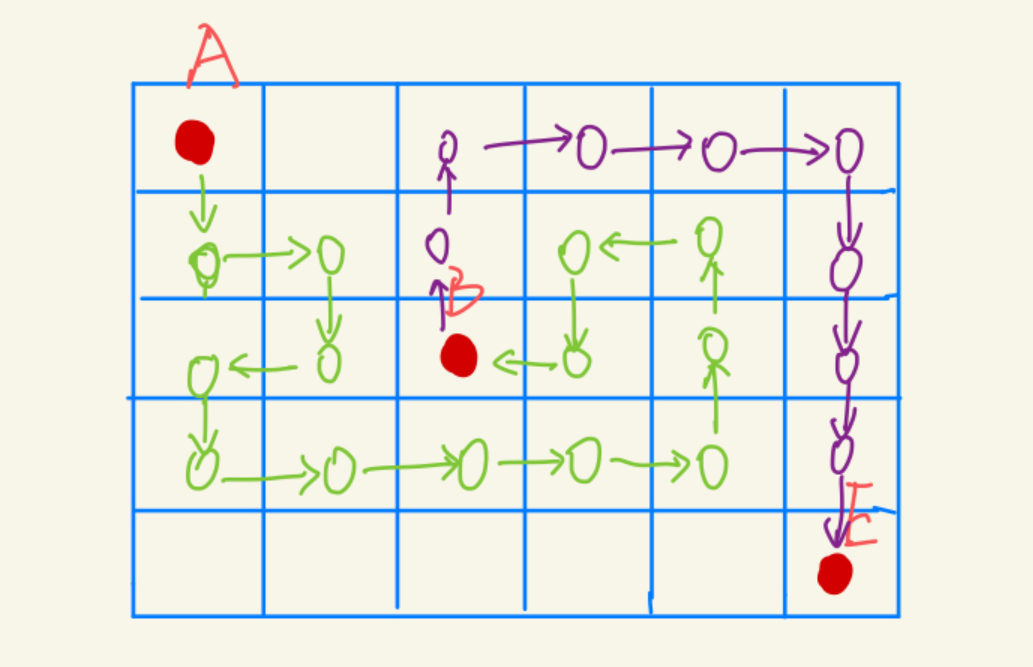 A
B
E